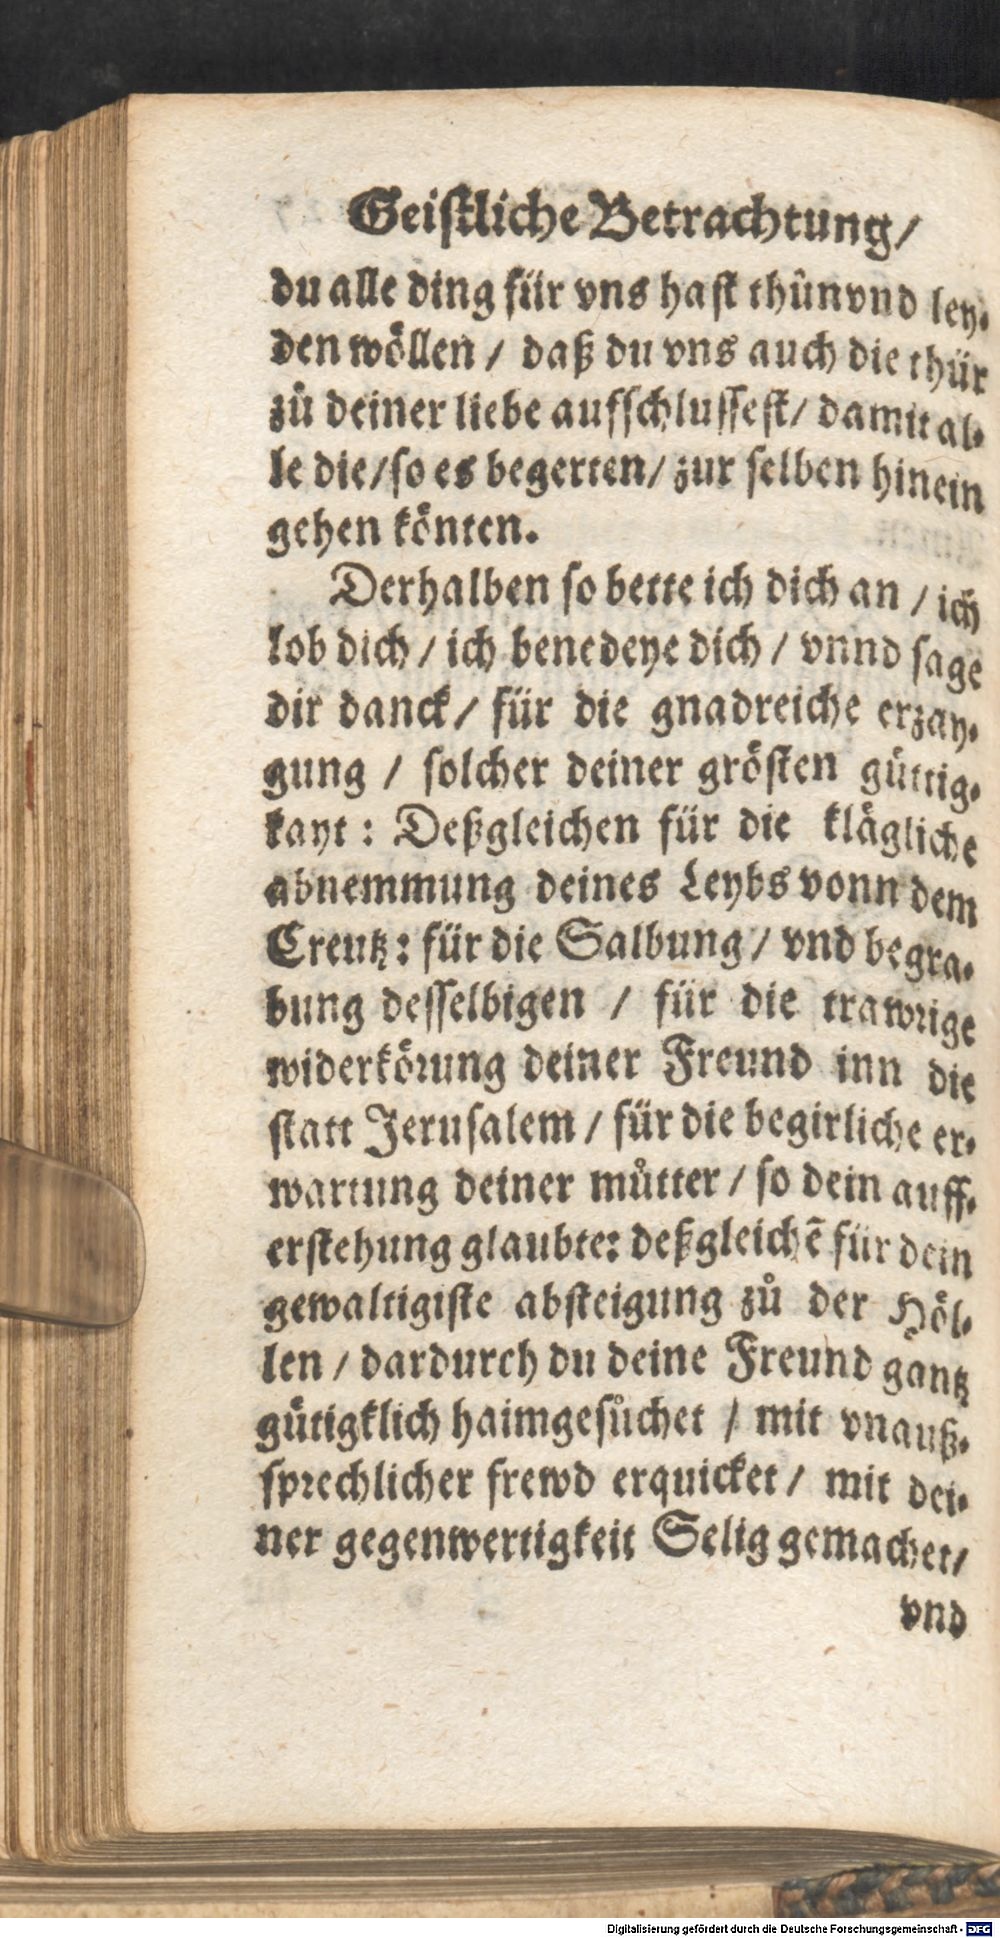 Geistliche Betrachtung/
du alle ding für vns hast thůn vnd ley⸗
den wöllen / daß du vns auch die thür
zů deiner liebe auffschlussest/ damit al⸗
le die/so es begerten/ zur selben hinein
gehen könten.
Derhalben so bette ich dich an / ich
lob dich / ich benedeye dich / vnnd sage
dir danck/ für die gnadreiche erzay⸗
gung / solcher deiner grösten güttig⸗
kayt : Deßgleichen für die klägliche
abnemmung deines Leybs vonn dem
Creutz: für die Salbung/ vnd begra⸗
bung desselbigen / für die trawrige
widerkörung deiner Freund inn die
statt Jerusalem / für die begirliche er⸗
wartung deiner můtter / so dein auff⸗
erstehung glaubte: deßgleichẽ für dein
gewaltigiste absteigung zů der Höl⸗
len / dardurch du deine Freund gantz
gütigklich haimgesůchet / mit vnauß⸗
sprechlicher frewd erquicket/ mit dei⸗
ner gegenwertigkeit Selig gemachet/
vnd
Digitalisierung gefördert durch die Deutsche Forschungsgemeinschaft - DFG